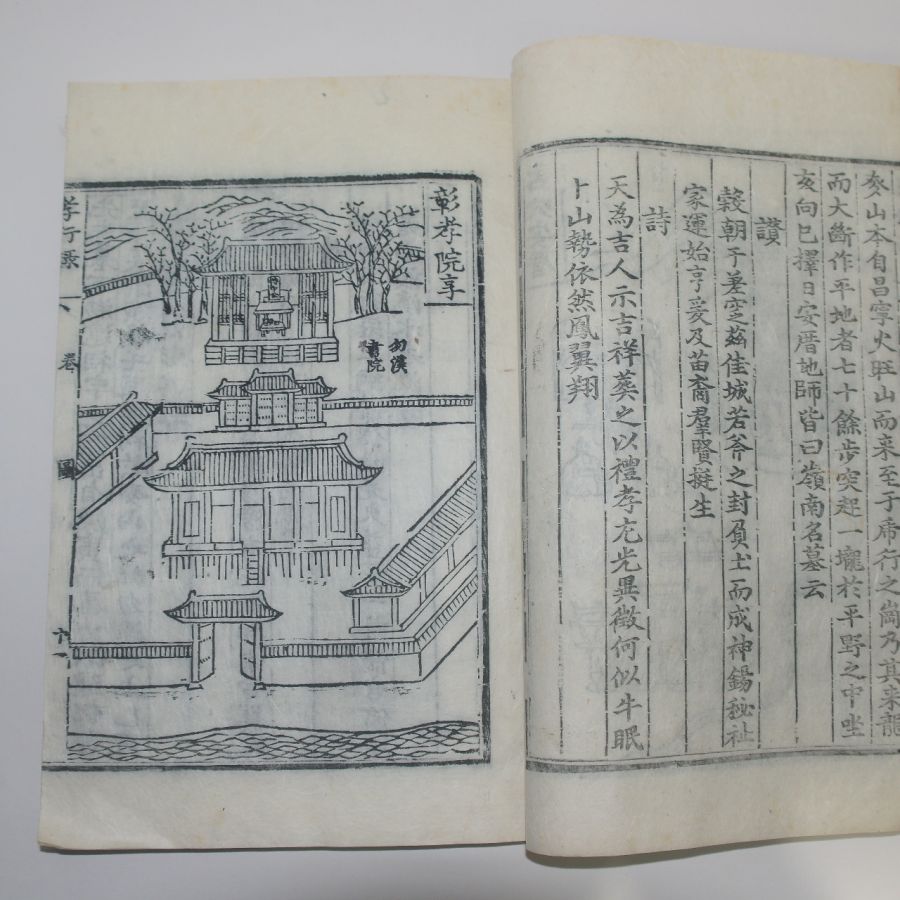 山本自昌寧火旺山而来至于席行之崗乃其来龍
而大斷作平地者七十餘步突起一壠於平野之中坐
亥向巳擇日安厝地師皆曰嶺南名墓云
讃
穀朝于差窆茲佳城若斧之封負土而成神錫秘祉
家運始亨爰及苗裔羣賢挺生
詩
天為吉人示吉祥葬之以禮孝尤光異徵何似牛眠
卜山勢依然鳳翼翔
彰孝院享
勿溪
書院
孝行錄
卷
圖
十一